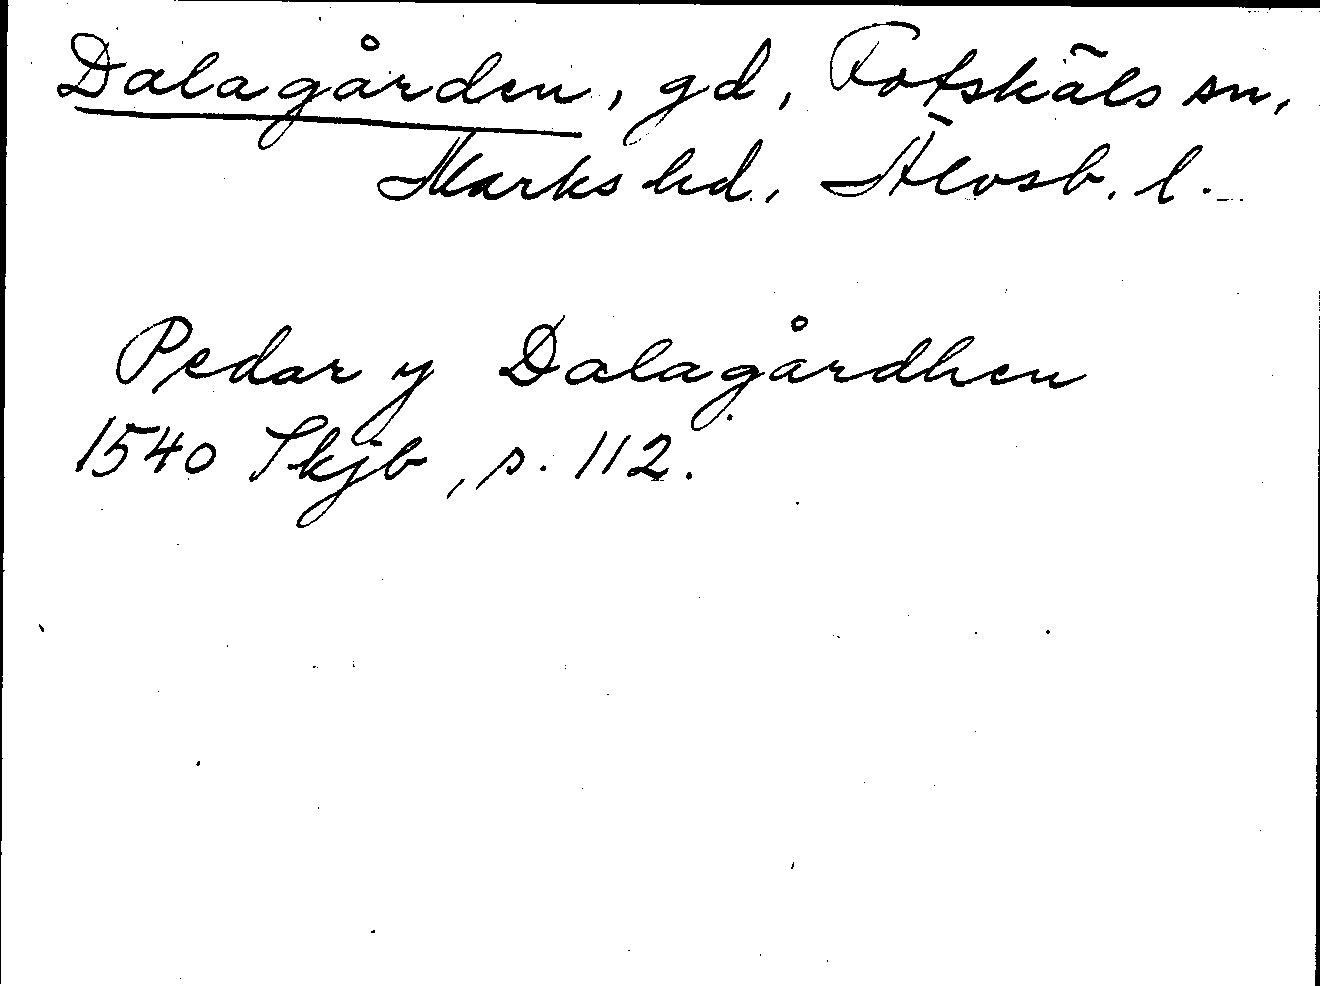 Dalagården, gd, Rotskäls sn,
Marks hd, Älvsb. l.
Pedar y Dalagårdhen
1540 Skjb, s. 112.